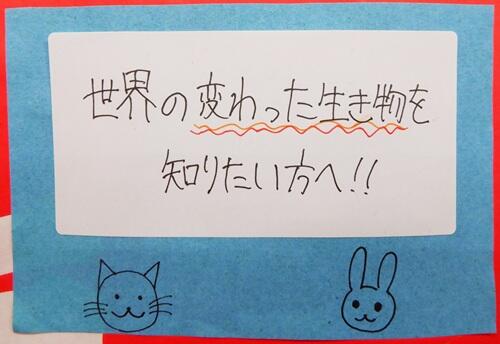 世界の変わった生き物を
知りたい方へ!!